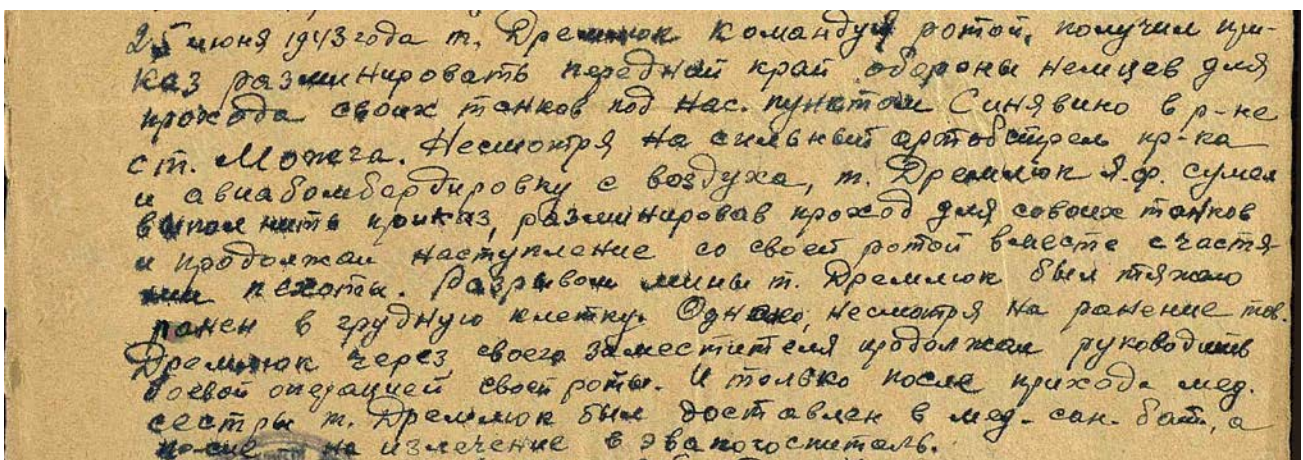 25 июня 1943 года т. Дремлюк командуя ротой, получил при-
каз разминировать передний край обороны немцев для
прохода своих танков под нас. пунктом Синявино в р-не
ст.Можга. Несмотря на сильный артобстрел пр-ка
и авиабомбардировку с воздуха, т. Дремлюк Я.Ф. сумел
выполнить приказ, разминировав проход для совоих танков
и продолжал наступление со своей ротой вместе с частя-
ми пехоты. Разрывом мины т. Дремлюк был тяжело
ранен в грудную клетку. Однако, несмотря на ранение тов.
Дремлюк через своего заместителя продолжал руководить
боевой операцией своей роты. И только после прихода мед.
сестры т. Дремлюк был доставлен в мед-сан. бат, а
после на излечение в эвакогоспиталь.